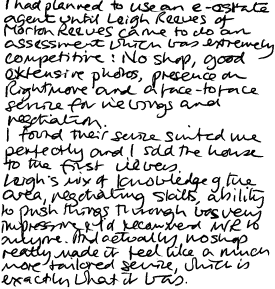 I had planned to use an e-estate
agent until Leigh Reeves of
Morton Reeves came to do an
assessment which was extremely
competitive: No shop, good
extensive photos, presence on
Rightmove and a face-to-face
service for viewings and
negotiation.
I found their service suited me
perfectly and I sold the house
to the first viewers.
Leigh's mix of knowledge of the
area, negotiating skills, ability
to push things through was very
impressive & I'd recommend M/R to
anyone. And actually, no shop
really made it feel like a much
more tailored service, which is
exactly what it was.